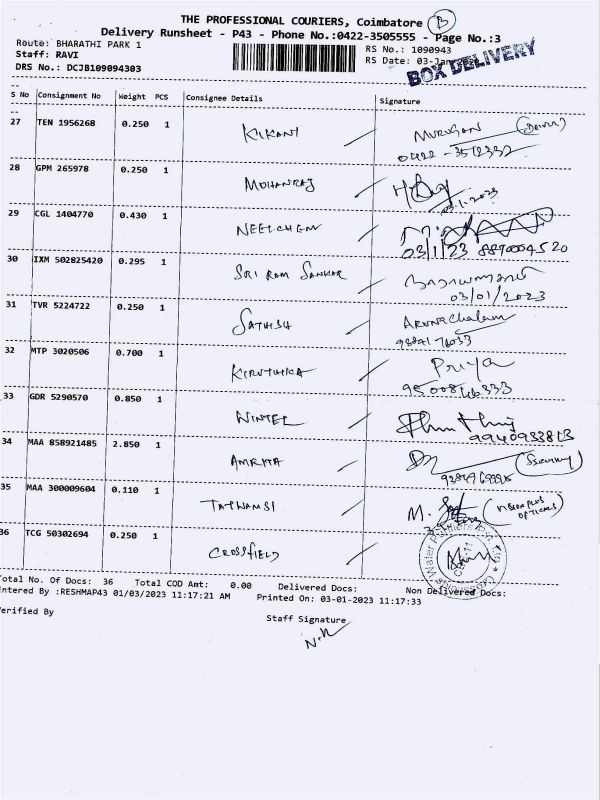 THE PROFESSIONAL COURIERS, Coimbatore B
Delivery Runsheet - P43 - Phone No.:0422-3505555 - Page No.:3
Route: BHARATHI PARK 1
RS No.: 1090943
Staff: RAVI
RS Date: 03-Jan
BOX DELIVERY
DRS No.: DCJB109094303
S No Consignment No Weight PCS Consignee Details Signature
27 TEN 1956268 0.250 1 KIKANI MURUGAN
0422 - 3572332
28 GPM 265978 0.250 1 MOHANRAJ
29 CGL 1404770 0.430 1 NEETCHEM
03/1/23 8870004520
30 IXM 502825420 0.295 1 SRI RAM SANKAR
03/01/2023
31 TVR 5224722 0.250 1 SATHISH Arunachalam
32 MTP 3020506 0.700 1 KIRUTHIKA Priya
33 GDR 5290570 0.850 1 WINTEL
9940933813
34 MAA 858921485 2.850 1 AMRITA
35 MAA 300009604 0.110 1 TATWAMSI M.
VISION PLUS
OPTICALS
36 TCG 50302694 0.250 1 CROSSFIELD
Total No. Of Docs: 36 Total COD Amt: 0.00 Delivered Docs: Non Delivered Docs:
Entered By :RESHMAP43 01/03/2023 11:17:21 AM Printed On: 03-01-2023 11:17:33
Verified By Staff Signature